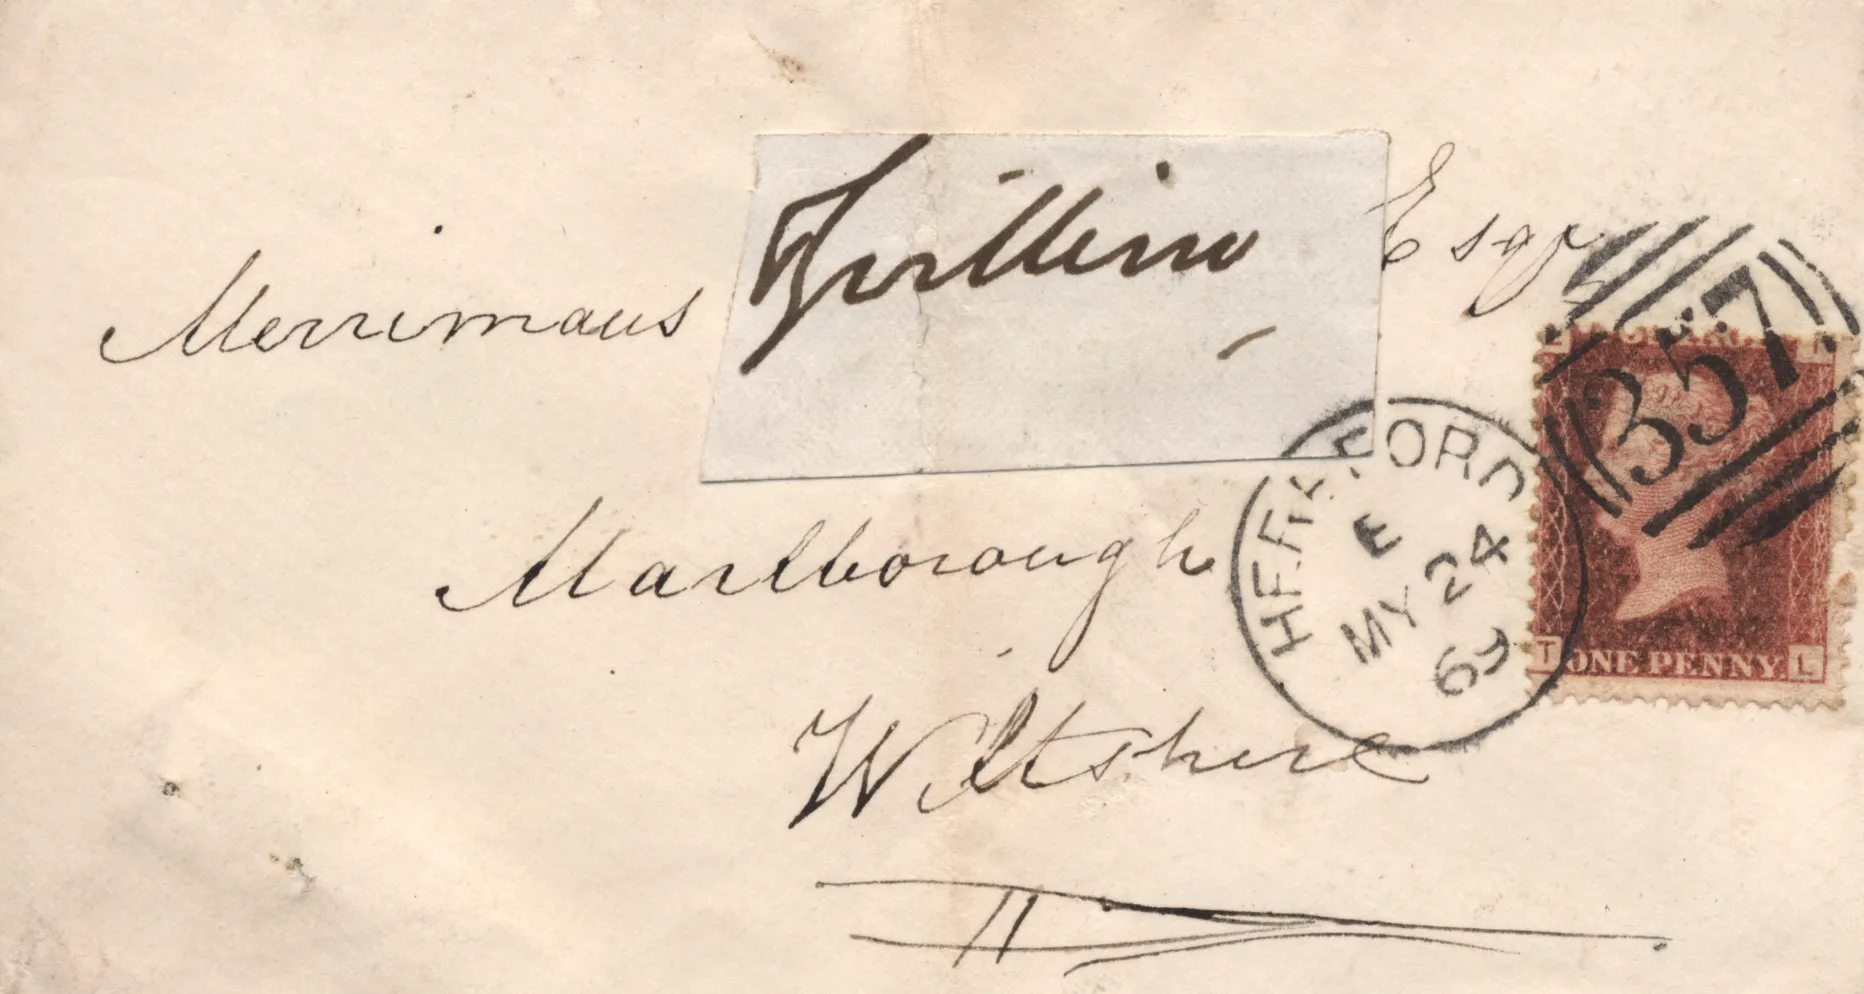 Merrimans
Esqr
Marlborough
Wiltshire
HEREFORD
E
MY 24
69
357
T ONE PENNY. L